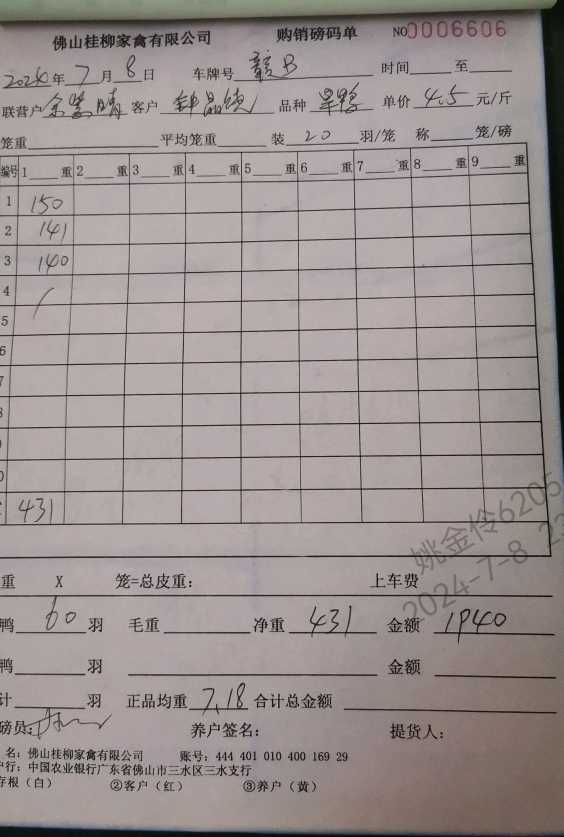 佛山桂柳家禽有限公司 购销磅码单 NO 0006606
2024年7月8日 车牌号 B 时间 至
联营户 余 晴 客户 钟晶 品种 旱鸭 单价 4.5 元/斤
笼重 平均笼重 装 20 羽/笼 称 笼/磅
编号 1 重 2 重 3 重 4 重 5 重 6 重 7 重 8 重 9 重
1 150
2 141
3 140
4
5
6
7
431
重 X 笼=总皮重: 上车费
鸭 60 羽 毛重 净重 431 金额 1940
鸭 羽 金额
计 羽 正品均重 7.18 合计总金额
磅员: 养户签名: 提货人:
名: 佛山桂柳家禽有限公司 账号: 444 401 010 400 169 29
户行: 中国农业银行广东省佛山市三水区三水支行
存根(白) ②客户(红) ③养户(黄)
姚金伶6205
2024-7-8 23